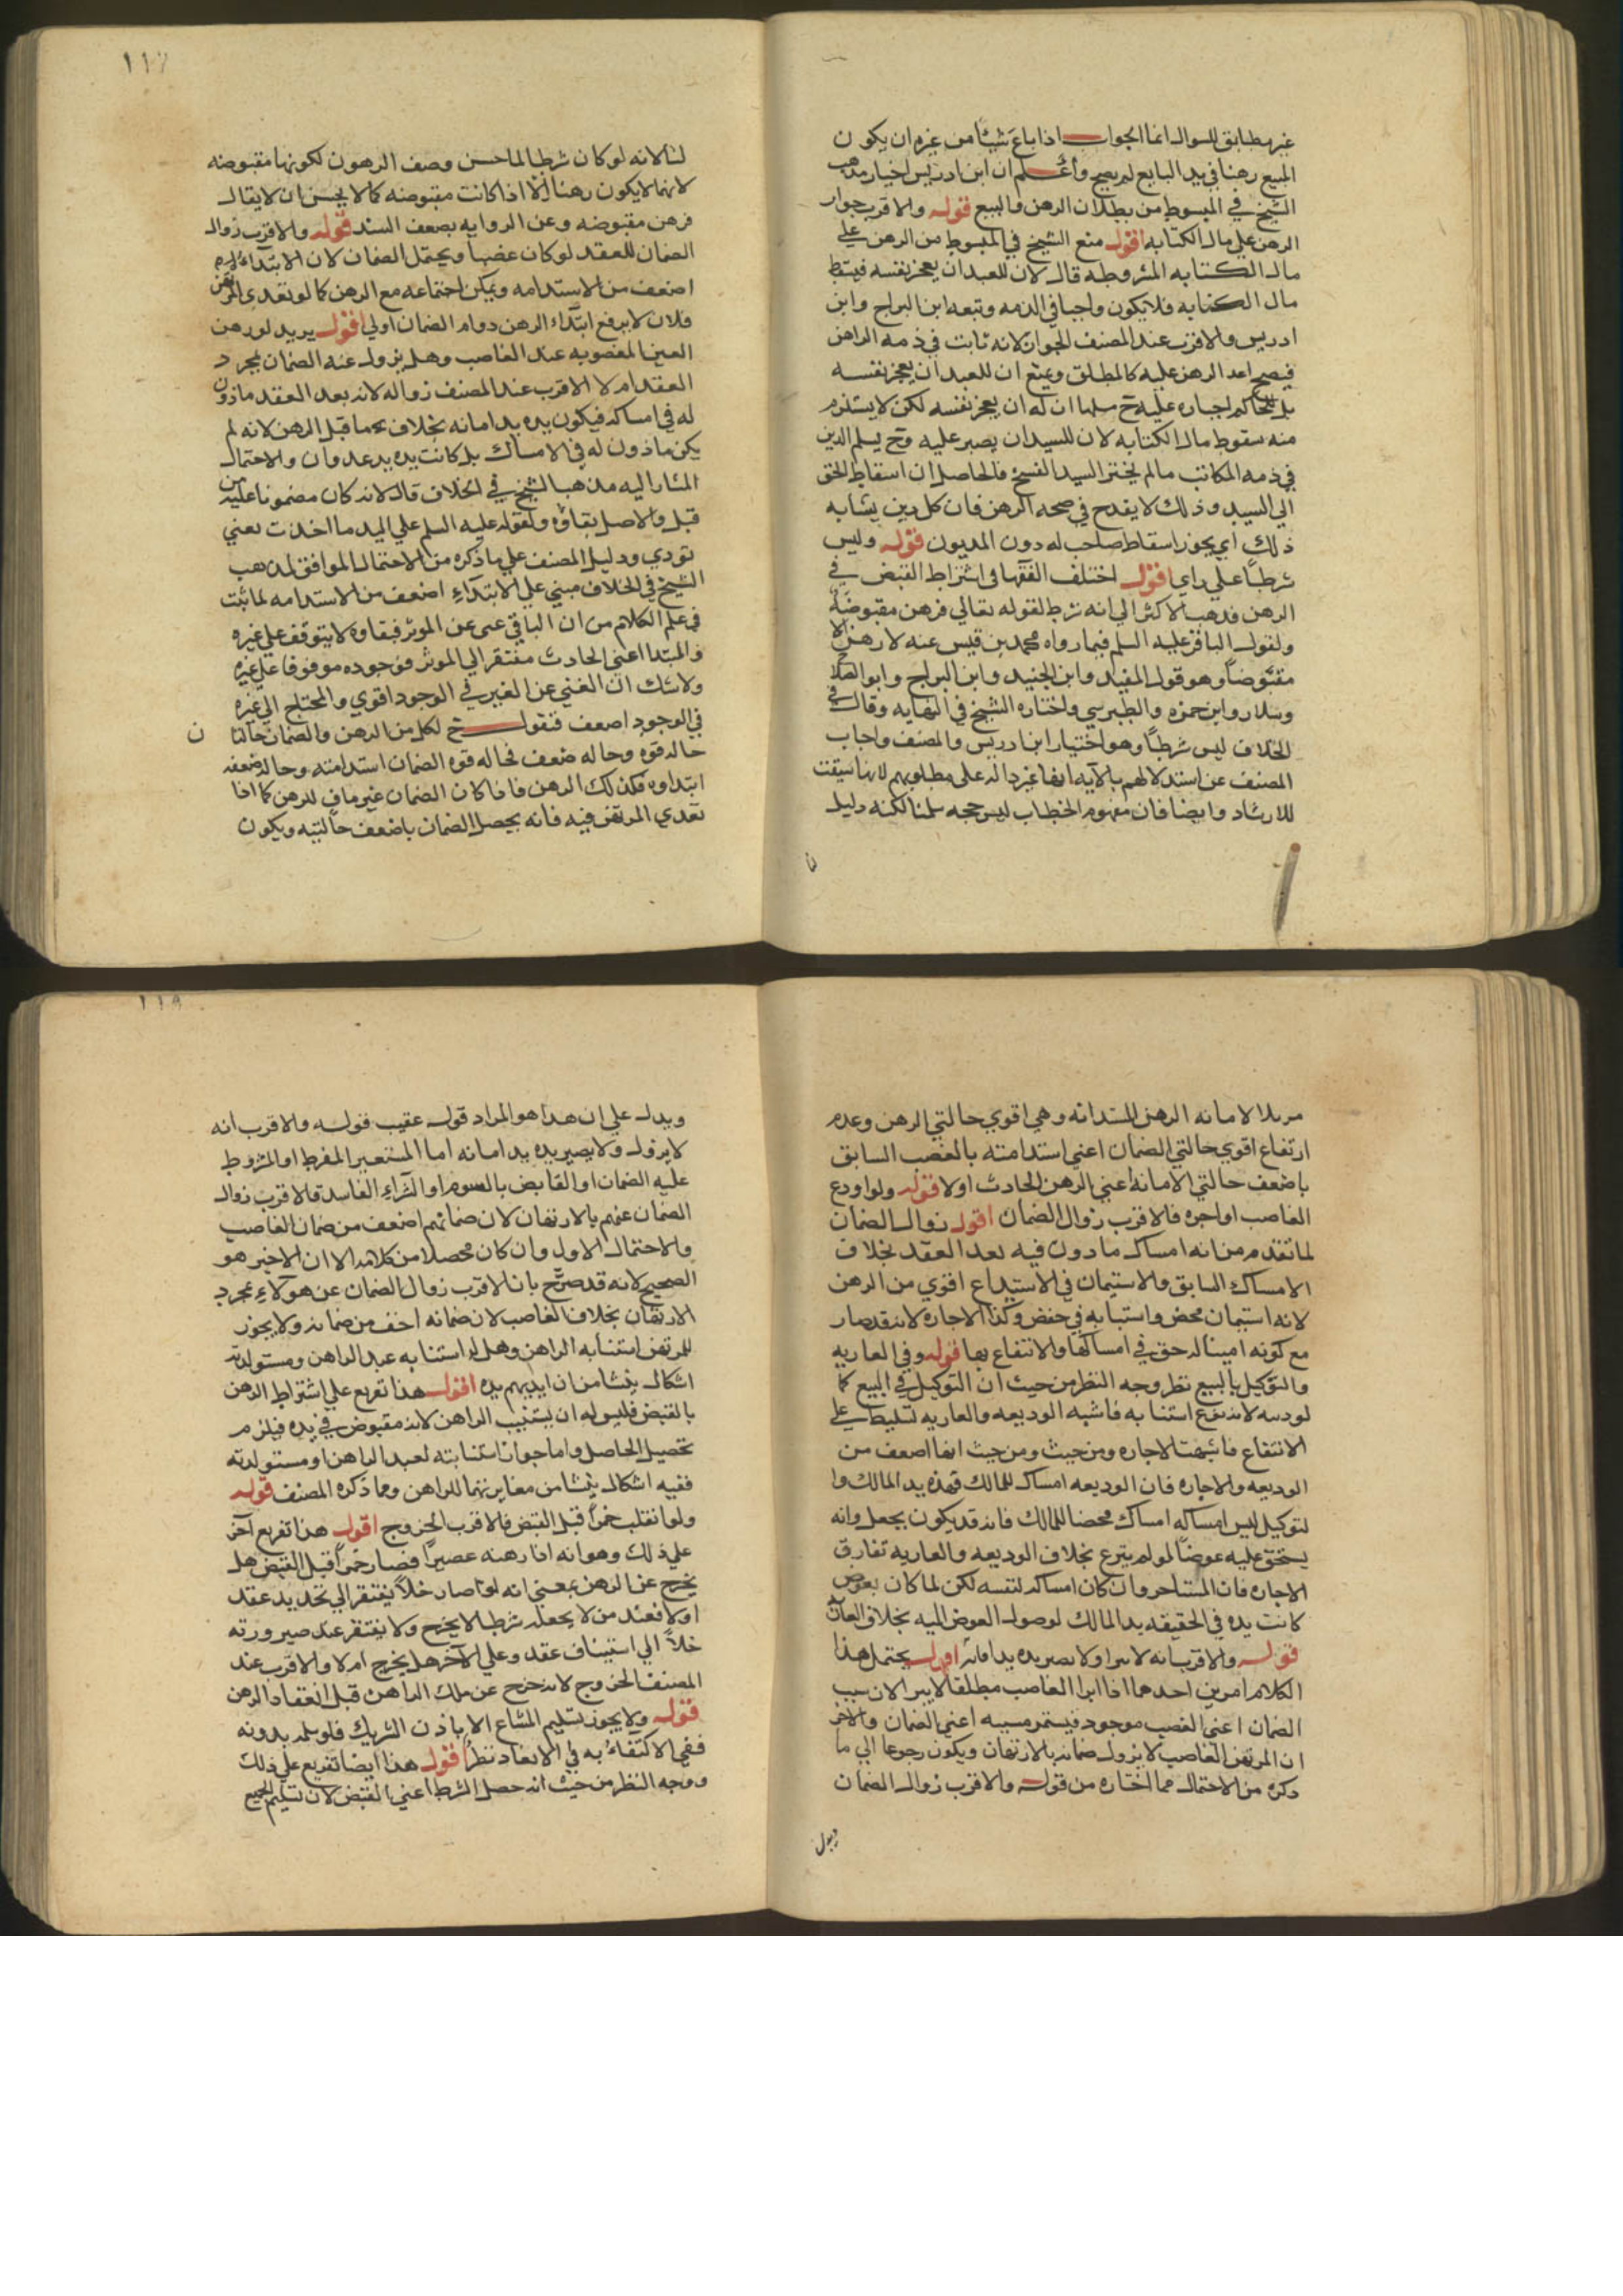 غير مطابق للسوال انما الجواب اذا باع شيئا من غيره ان يكون
المبيع رهنا في يد البايع لم يصح واعلم ان ابن ادريس اختار مذهب
الشيخ في المبسوط من بطلان الرهن والبيع قوله والاقرب جواز
الرهن علي مال الكتابه اقول منع الشيخ في المبسوط من الرهن علي
مال الكتابه المشروطه قال لان للعبد ان يعجز نفسه فيسقط
مال الكتابه فلا يكون واجبا في الذمه وتبعه ابن البراج وابن
ادريس والاقرب عند المصنف الجواز لانه ثابت في ذمه الراهن
فيصح اخذ الرهن عليه كالمطلق ويمنع ان للعبد ان يعجز نفسه
بل للحاكم اجباره عليه ح سلمنا ان له ان يعجز نفسه لكن لا يستلزم
منه سقوط مال الكتابه لان للسيد ان يصبر عليه وح يسلم الدين
في ذمه المكاتب مالم يختر السيد الفسخ فالحاصل ان اسقاط الحق
الي السيد وذلك لا يقدح في صحه الرهن فان كل دين يشابه
ذلك اي يجوز اسقاط صاحب له دون المديون قوله وليس
شرطا علي راي اقول اختلف الفقها في اشتراط القبض في
الرهن فذهب الاكثر الي انه شرط لقوله تعالي فرهن مقبوضة
ولقول الباقر عليه السلم فيما رواه محمد بن قيس عنه لا رهن الا
مقبوضا وهو قول المفيد وابن الجنيد وابن البراج وابو الصلاح
وسلار وابن حمزه والطبرسي واختاره الشيخ في النهايه وقال في
الخلاف ليس شرطا وهو اختيار ابن ادريس والمصنف واجاب
المصنف عن استدلالهم بالآيه انها غير داله علي مطلوبهم لانها سيقت
للارشاد وايضا فان مفهوم الخطاب ليس حجه سلمنا لكنه دليل
١١٧
لنا لانه لو كان شرطا لما حسن وصف الرهون لكونها مقبوضه
لانها لا يكون رهنا الا اذا كانت مقبوضه كما لا يحسن ان لا يقال
فرهن مقبوضه وعن الروايه بضعف السند قوله والاقرب زوال
الضمان للعقد لو كان غصبا ويحتمل الضمان لان الابتداء
اضعف من الاستدامه ويمكن اجتماعه مع الرهن كما لو تعدي المرتهن
فلان لا يرفع ابتداء الرهن دوام الضمان اولي اقول يريد لو رهن
العين المغصوبه عند الغاصب وهل يزول عنه الضمان بمجرد
العقد ام لا الاقرب عند المصنف زواله لانه بعد العقد ماذون
له في امساكه فيكون يده يد امانه بخلاف يده ما قبل الرهن لانه لم
يكن ماذون له في الامساك بل كانت يده يد عدوان والاحتمال
المشار اليه مذهب الشيخ في الخلاف قال لانه كان مضمونا عليه من
قبل والاصل بقاؤه ولقوله عليه السلم علي اليد ما اخذت يعني
تودي ودليل المصنف علي ما ذكره من الاحتمال الموافق لمذهب
الشيخ في الخلاف مبني علي الابتداء اضعف من الاستدامه لما ثبت
في علم الكلام من ان الباقي غني عن الموثر فبقاوه لا يتوقف علي غيره
والمبتدا اعني الحادث مفتقر الي الموثر فوجوده موقوفا علي غيره
ولا شك ان الغني عن الغير في الوجود اقوي والمحتاج الي غيره
في الوجود اضعف فنقول ح لكل من الرهن والضمان حالتا
ن
حاله قوه وحاله ضعف فحاله قوه الضمان استدامته وحاله ضعفه
ابتداوه فكذلك الرهن فاذا كان الضمان غير مناف للرهن كما اذا
تعدي المرتهن فيه فانه يحصل الضمان باضعف حالتيه ويكون
مزيلا لامانه الرهن المستدامه وهي اقوي حالتي الرهن وعدم
ارتفاع اقوي حالتي الضمان اعني استدامته بالغصب السابق
باضعف حالتي الامانه اعني الرهن الحادث اولا قوله ولو اودع
الغاصب او اجره فالاقرب زوال الضمان اقول زوال الضمان
لما تقدم من انه امساك ماذون فيه بعد العقد بخلاف
الامساك السابق والاستيمان في الاستيداع اقوي من الرهن
لانه استيمان محض واستبابه في حفض وكذا الاجاره لانه قد صار
مع كونه امينا له حق في امساكها والانتفاع بها قوله وفي العاريه
والتوكيل بالبيع نظر وجه النظر من حيث ان التوكيل في البيع كما
لو دعه لانه نوع استنابه فاشبه الوديعه والعاريه تسليط علي
الانتفاع فاشبهت الاجاره ومن حيث ومن حيث انها اضعف من
الوديعه والاجاره فان الوديعه امساك للمالك فهذه يد المالك وا
لتوكيل ليس امساكه امساك محضا للمالك فانه قد يكون بجعل وانه
يستحق عليه عوضا لو لم يتبرع بخلاف الوديعه والعاريه تفارق
الاجاره فان المستاجر وان كان امساكه لنفسه لكن لما كان بعوض
كانت يده في الحقيقه يد المالك لوصول العوض اليه بخلاف العاريه
قوله والاقرب انه لا يبرا ولا تصير يده يد امانه اقول يحتمل هذا
الكلام امرين احدهما اذا ابرا الغاصب مطلقا لا يبرا لان سبب
الضمان اعني الغصب موجود فيستمر مسببه اعني الضمان والاخر
ان المرتهن الغاصب لا يزول ضمانه بالارتهان ويكون رجوعا الي ما
ذكره من الاحتمال مما اختاره من قوله والاقرب زوال الضمان
ويدل
١١٨
ويدل علي ان هذا هو المراد قوله عقيب قوله والاقرب انه
لا يزول ولا يصير يده يد امانه اما المستعير المفرط او المشروط
عليه الضمان او القابض بالسوم او الشراء الفاسد فالاقرب زوال
الضمان عنهم بالارتهان لان ضمانهم اضعف من ضمان الغاصب
والاحتمال الاول وان كان محصلا من كلامه الا ان الاخير هو
الصحيح لانه قد صرح بان الاقرب زوال الضمان عن هولاء بمجرد
الارتهان بخلاف الغاصب لان ضمانه اخف من ضمانه ولا يجوز
للمرتهن استنابه الراهن وهل له استنابه عبد الراهن ومستولدته
اشكال ينشا من ان ايديهم يده اقول هذا تفريع علي اشتراط الرهن
بالقبض فليس له ان يستنيب الراهن لانه مقبوض في يده فيلزم
تحصيل الحاصل واما جواز استنابته لعبد الراهن او مستولدته
ففيه اشكال ينشا من مغايرتهما للراهن ومما ذكره المصنف قوله
ولو انقلب خمرا قبل القبض فالاقرب الخروج اقول هذا تفريع آخر
علي ذلك وهو انه اذا رهنه عصيرا فصار خمرا قبل القبض هل
يخرج عن الرهن بمعني انه لو صار خلا يفتقر الي تجديد عقد
او لا فعند من لا يجعله شرطا لا يخرج ولا يفتقر عند صيرورته
خلا الي استيناف عقد وعلي الآخر هل يخرج ام لا والاقرب عند
المصنف الخروج لانه خرج عن ملك الراهن قبل انعقاد الرهن
قوله ولا يجوز تسليم المشاع الا باذن الشريك فلو سلم بدونه
ففي الاكتفاء به في الانعقاد نظر اقول هذا ايضا تفريع علي ذلك
ووجه النظر من حيث انه حصل الشرط اعني القبض لان تسليم الجميع